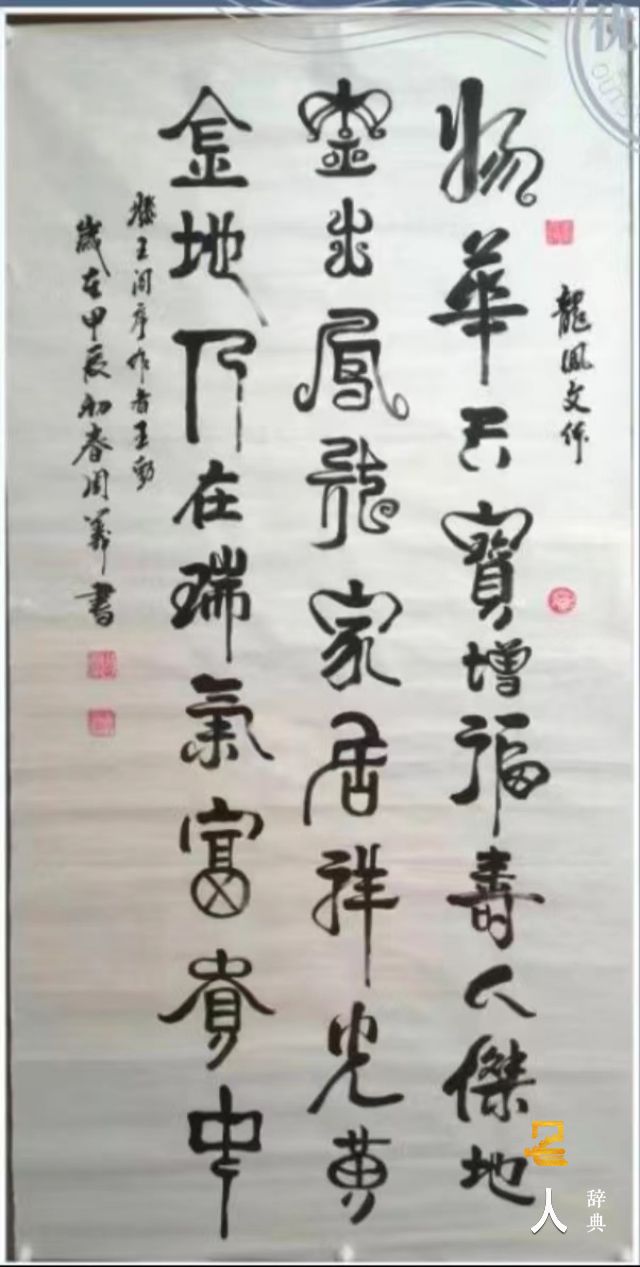 优
OUTS
龍鳳文体
物華天寶增福壽人傑地
靈出鳳龍家居祥光黄
金地乃在瑞氣富貴中
滕王阁序作者王勃
歲在甲辰初春周書
名人
辞典